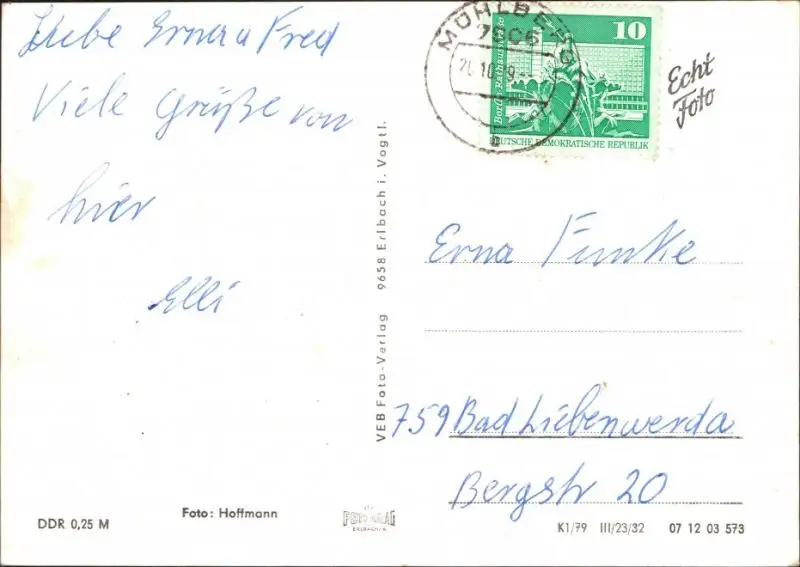 Liebe Erna u Fred
Viele Grüße von
hier
Elli
MÜHLBERG
7906
10
Berlin, Rathausstrasse
DEUTSCHE DEMOKRATISCHE REPUBLIK
Echt
Foto
VEB Foto-Verlag 9658 Erlbach i. Vogtl.
Erna Funke
759 Bad Liebenwerda
Bergstr 20
DDR 0,25 M
Foto: Hoffmann
ERLBACH
K1/79 III/23/32 07 12 03 573